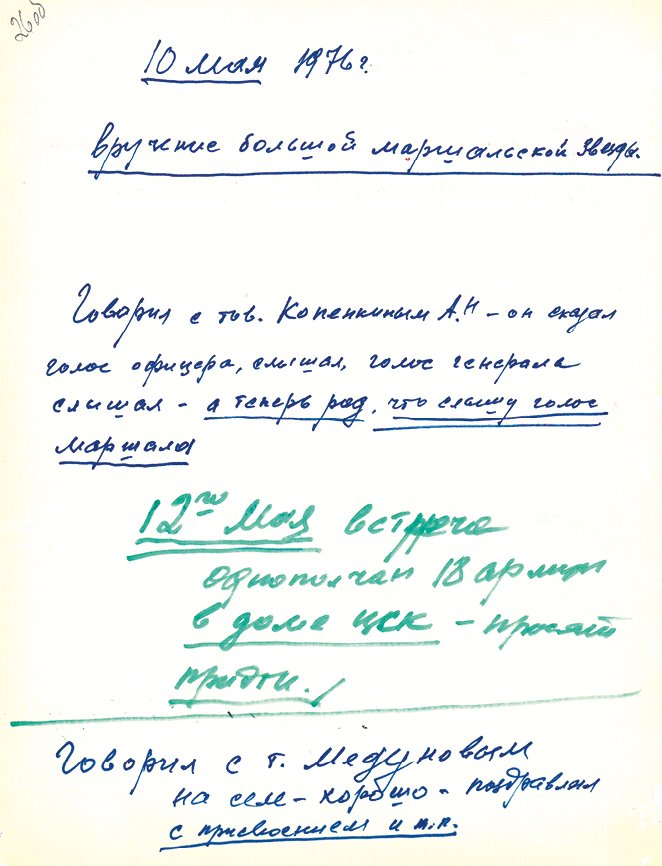 26об
10 мая 1976 г.
вручение большой маршальской Звезды.
Говорил с тов. Копенкиным А.Н – он сказал
голос офицера, слышал, голос генерала
слышал – а теперь рад, что слышу голос
Маршала
12го мая встреча
однополчан 18 армии
в доме ЦСК – просят
придти.
Говорил с т. Медуновым
на сем – хорошо – поздравлял
с присвоением и т.п.